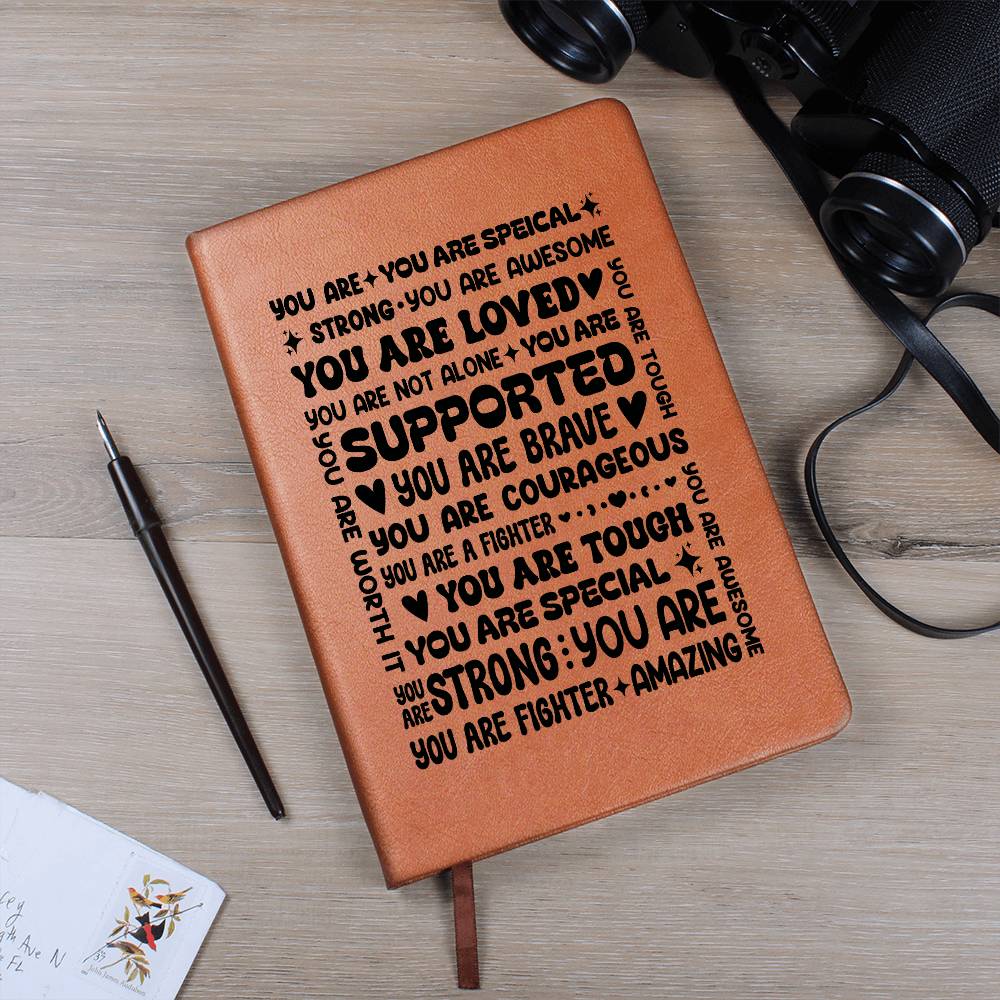 YOU ARE YOU ARE SPEICAL
STRONG • YOU ARE AWESOME
YOU ARE LOVED
YOU ARE NOT ALONE YOU ARE
SUPPORTED
YOU ARE BRAVE
YOU ARE COURAGEOUS
YOU ARE A FIGHTER
YOU ARE TOUGH
YOU ARE SPECIAL
YOU
ARE STRONG : YOU ARE
YOU ARE FIGHTER AMAZING
YOU ARE WORTH IT
YOU ARE TOUGH
YOU ARE AWESOME
Ave N
FL
37
John James Audubon